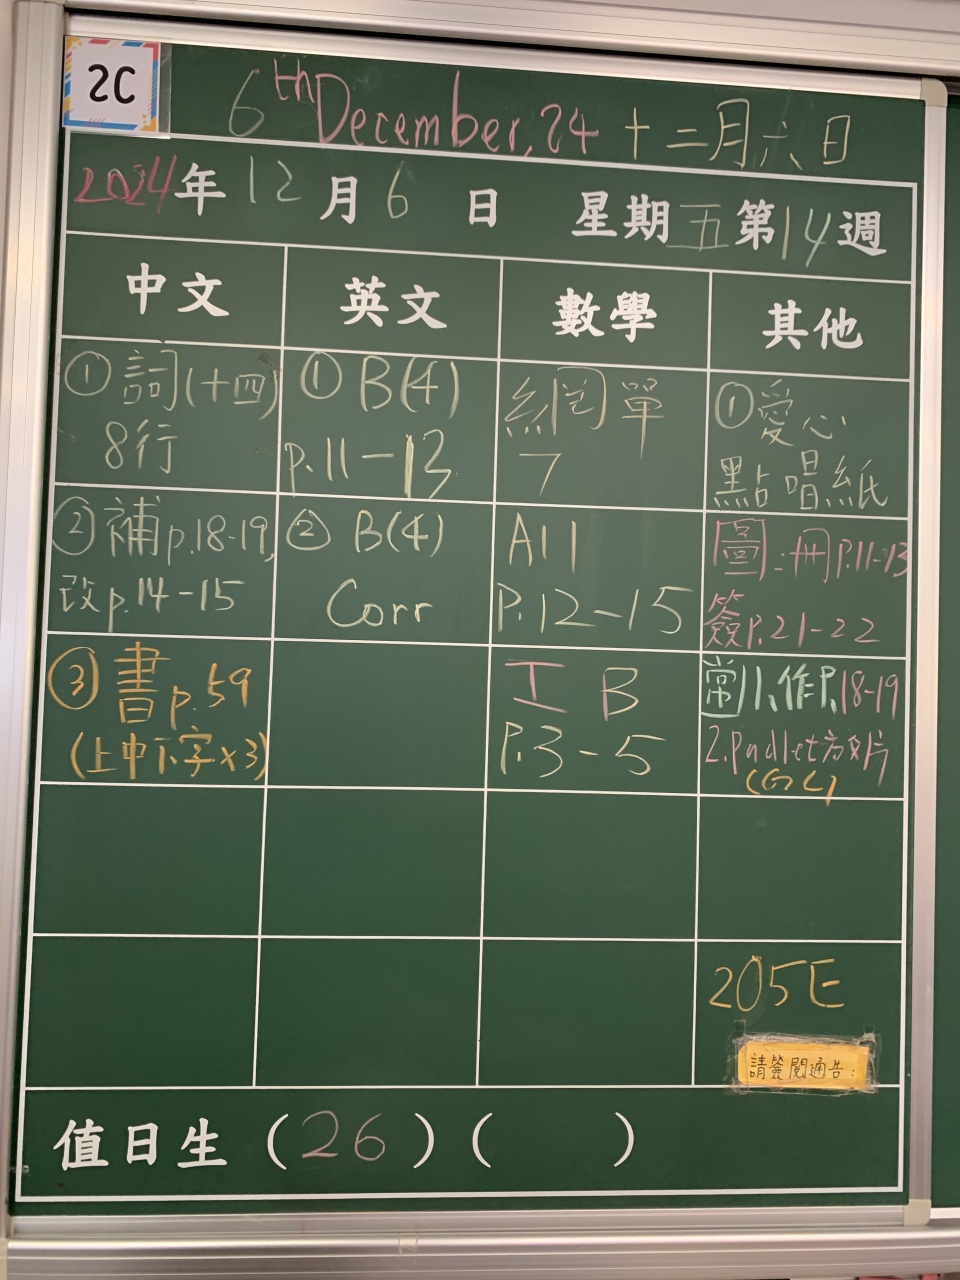 2C
6th December, 24 十二月六日
2024年12月6日 星期五第14週
中文 英文 數學 其他
① 詞(十四)
8行
① B(4)
p.11-13
網單
7
①愛心
點唱紙
② 補p.18-19,
改p.14-15
② B(4)
Corr
A11
P.12-15
圖:冊P.11-13
簽P.21-22
③ 書p.59
(上中下字×3)
工 B
P.3-5
常1小作P.18-19
2.Padlet方文片
(GC)
205E
請簽閱通告:
值日生(26)( )